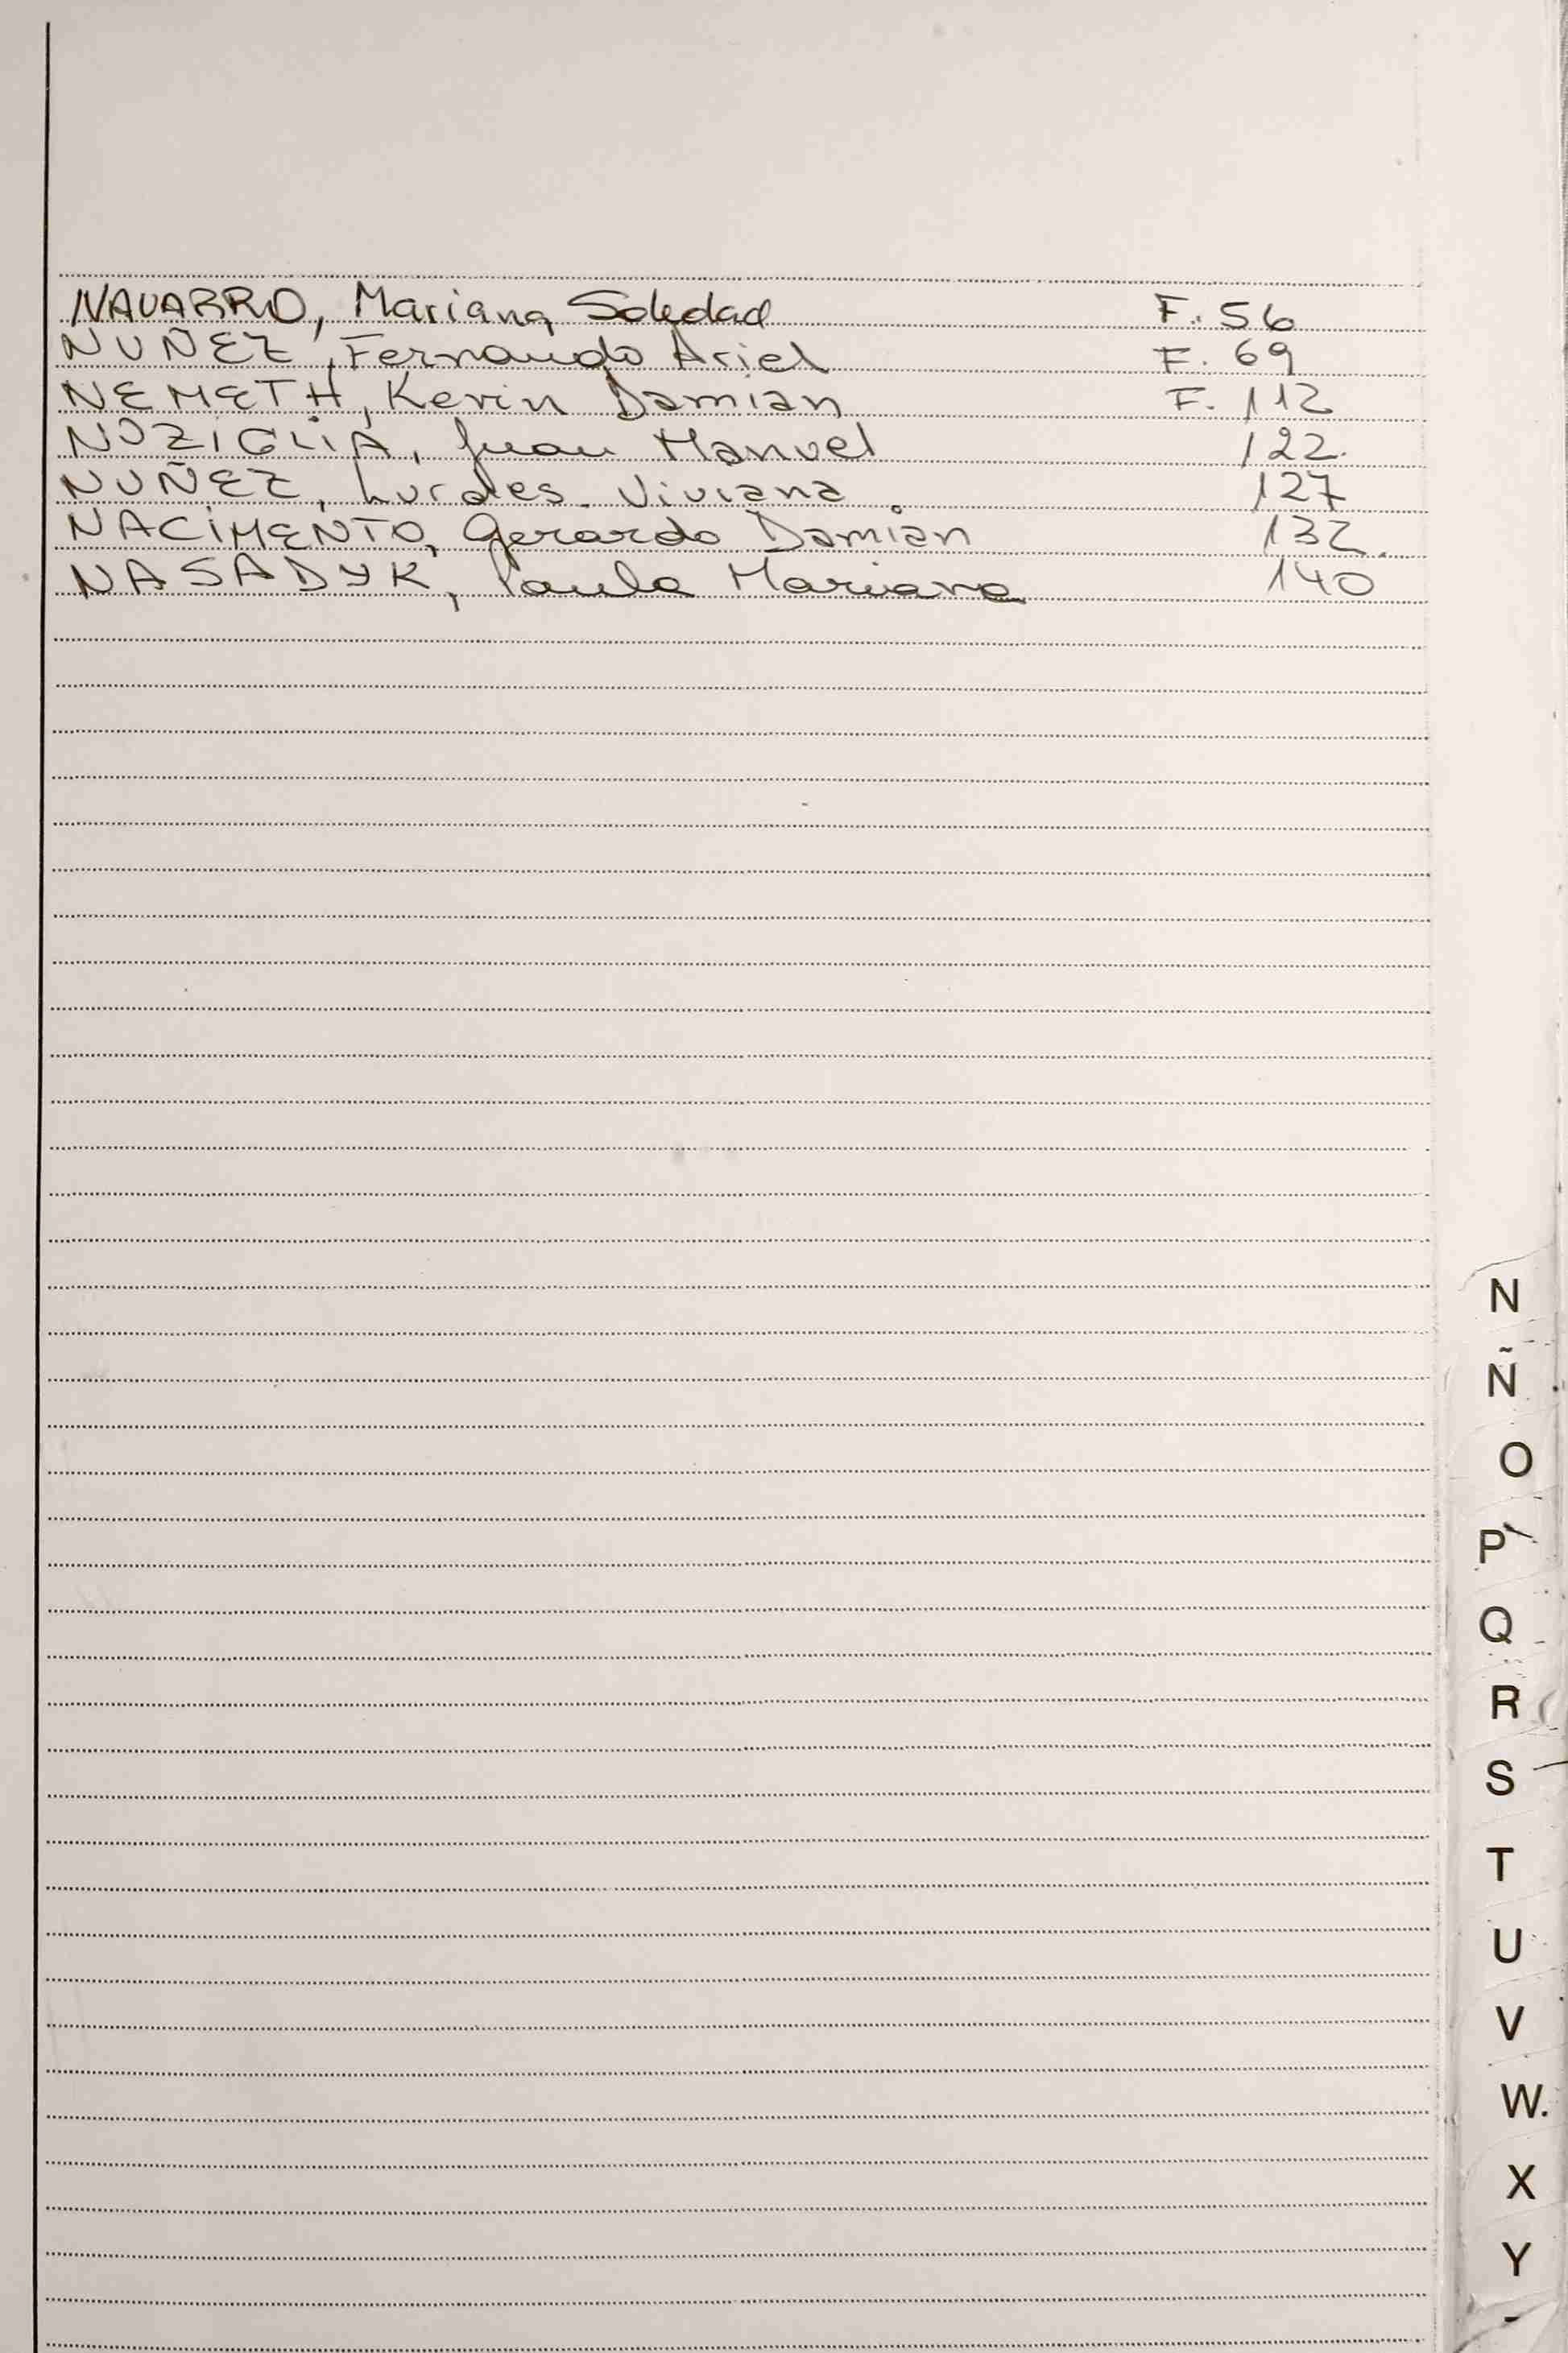 NAVARRO, Mariana Soledad F. 56
NUÑEZ, Fernando Ariel F. 69
NEMETH, Kevin Damian F. 112
NOZIGLIA, Juan Manuel 122.
NUÑEZ, Lurdes Viviana 127
NACIMENTO, Gerardo Damian 132.
NASADYK, Paula Mariana 140
N
Ñ
O
P
Q
R
S
T
U
V
W.
X
Y